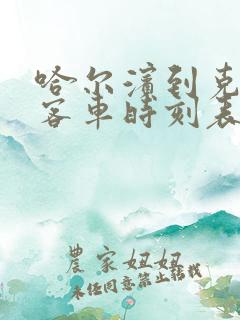 哈尔滨到克
客车时刻表
農家妞妞
未经同意禁止转载